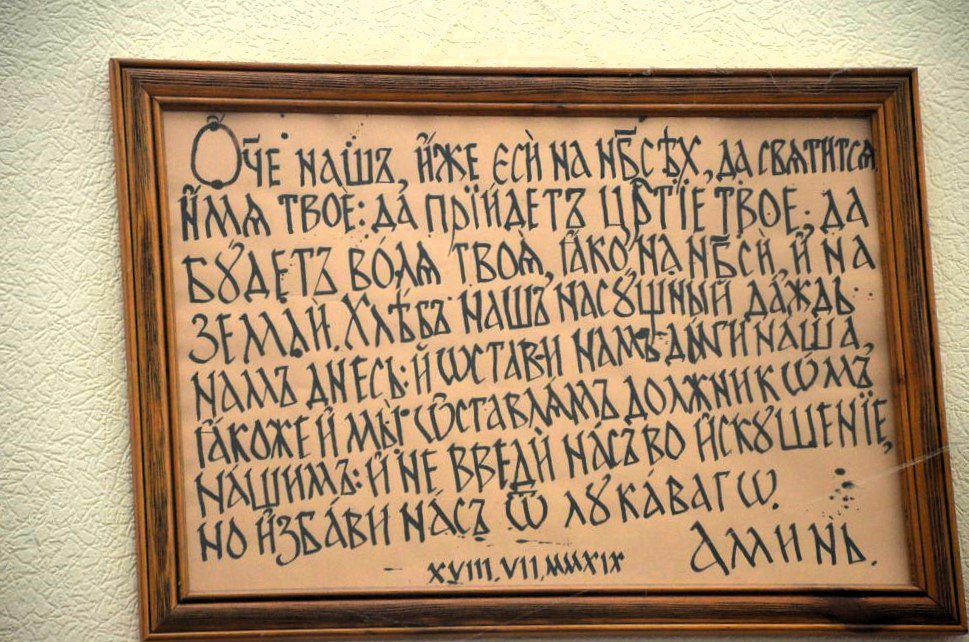 Ѻ҃че нашъ, и҆́же є҆сѝ на нб҃сѣ́хъ, да свѧти́тсѧ
и҆́мѧ твоѐ: да прїи́детъ цр҃твїе твоѐ: да
бꙋ́детъ во́лѧ твоѧ̀, ꙗ҆́кѡ на нб҃сѝ, и҆ на
землѝ. Хлѣ́бъ нашъ насꙋ́щный да́ждь
намъ дне́сь: и҆ ѡ҆ста́ви намъ до́лги на́ша,
ꙗ҆́коже и҆ мы̀ ѡ҆ставлѧ́емъ должникѡ́мъ
на́шимъ: и҆ не введѝ на́съ во и҆скꙋше́нїе,
но и҆зба́ви на́съ ѿ лꙋка́вагѡ.
XVIII.VII.MMXIX Аминь.